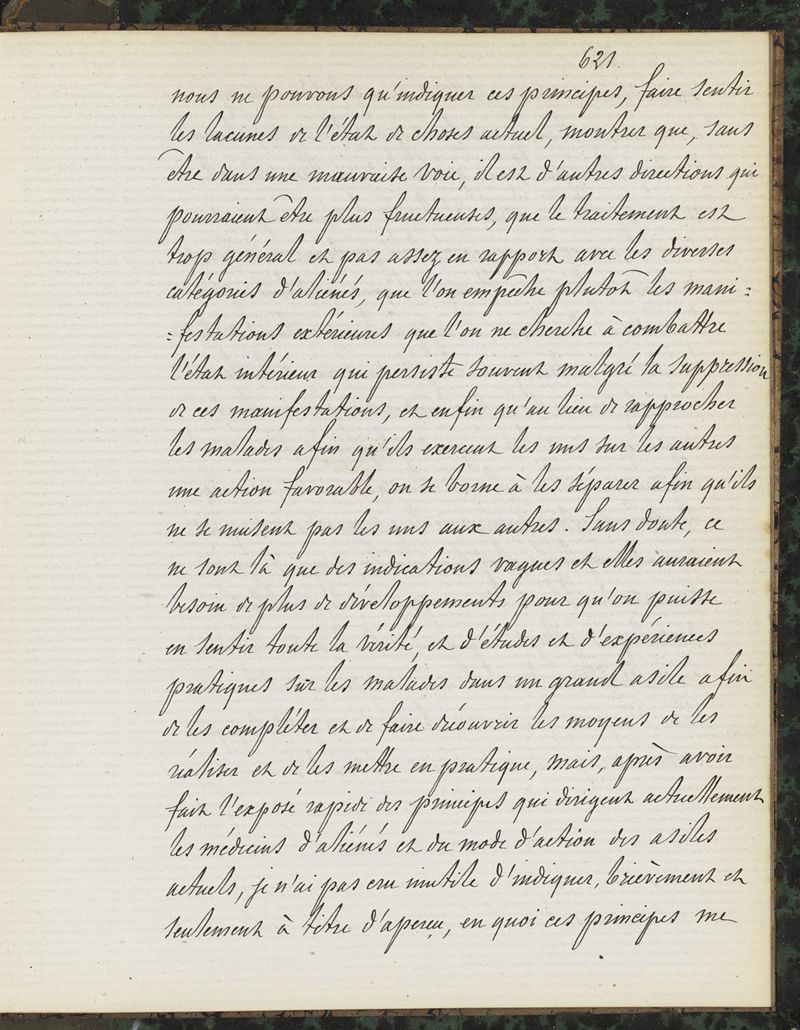 621.
nous ne pouvons qu'indiquer ces principes, faire sentir
les lacunes de l'état de choses actuel, montrer que, sans
être dans une mauvaise voie, il est d'autres directions qui
pourraient être plus fructueuses, que le traitement est
trop général et pas assez en rapport avec les diverses
catégories d'aliénés, que l'on empêche plutôt les mani=
=festations extérieures que l'on ne cherche à combattre
l'état intérieur qui persiste souvent malgré la suppression
de ces manifestations, et enfin qu'au lieu de rapprocher
les malades afin qu'ils exercent les uns sur les autres
une action favorable, on se borne à les séparer afin qu'ils
ne se nuisent pas les uns aux autres. Sans doute, ce
ne sont là que des indications vagues et elles auraient
besoin de plus de développements pour qu'on puisse
en sentir toute la vérité, et d'études et d'expériences
pratiques sur les malades dans un grand asile afin
de les compléter et de faire découvrir les moyens de les
réaliser et de les mettre en pratique, mais, après avoir
fait l'exposé rapide des principes qui dirigent actuellement
les médecins d'aliénés et du mode d'action des asiles
actuels, je n'ai pas cru inutile d'indiquer, brièvement et
seulement à titre d'aperçu, en quoi ces principes me